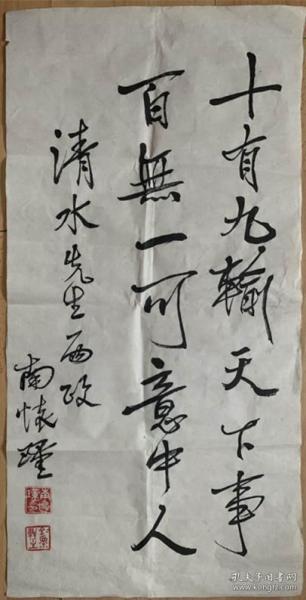 十有九輸天下事
百無一可意中人
清水先生两政
南怀瑾
孔夫子旧书网